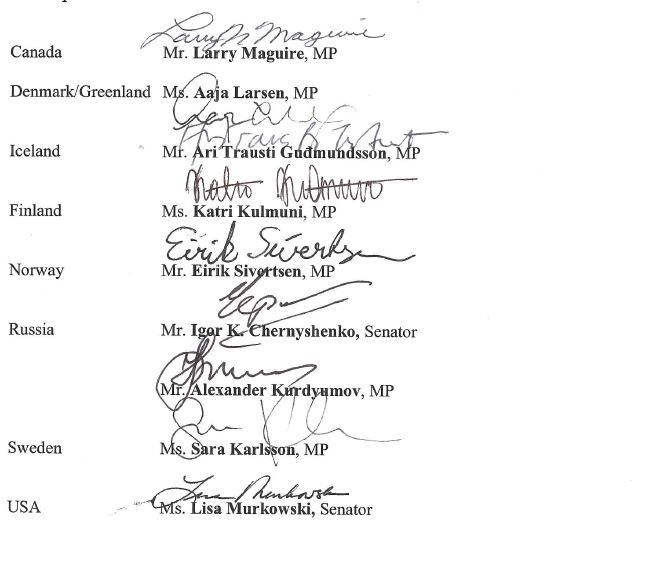 Larry Maguire
Canada Mr. Larry Maguire, MP
Denmark/Greenland Ms. Aaja Larsen, MP
Iceland Mr. Ari Trausti Guđmundsson, MP
Katri Kulmuni
Finland Ms. Katri Kulmuni, MP
Eirik Sivertsen
Norway Mr. Eirik Sivertsen, MP
Russia Mr. Igor K. Chernyshenko, Senator
Mr. Alexander Kurdyumov, MP
Sweden Ms. Sara Karlsson, MP
Lisa Murkowski
USA Ms. Lisa Murkowski, Senator